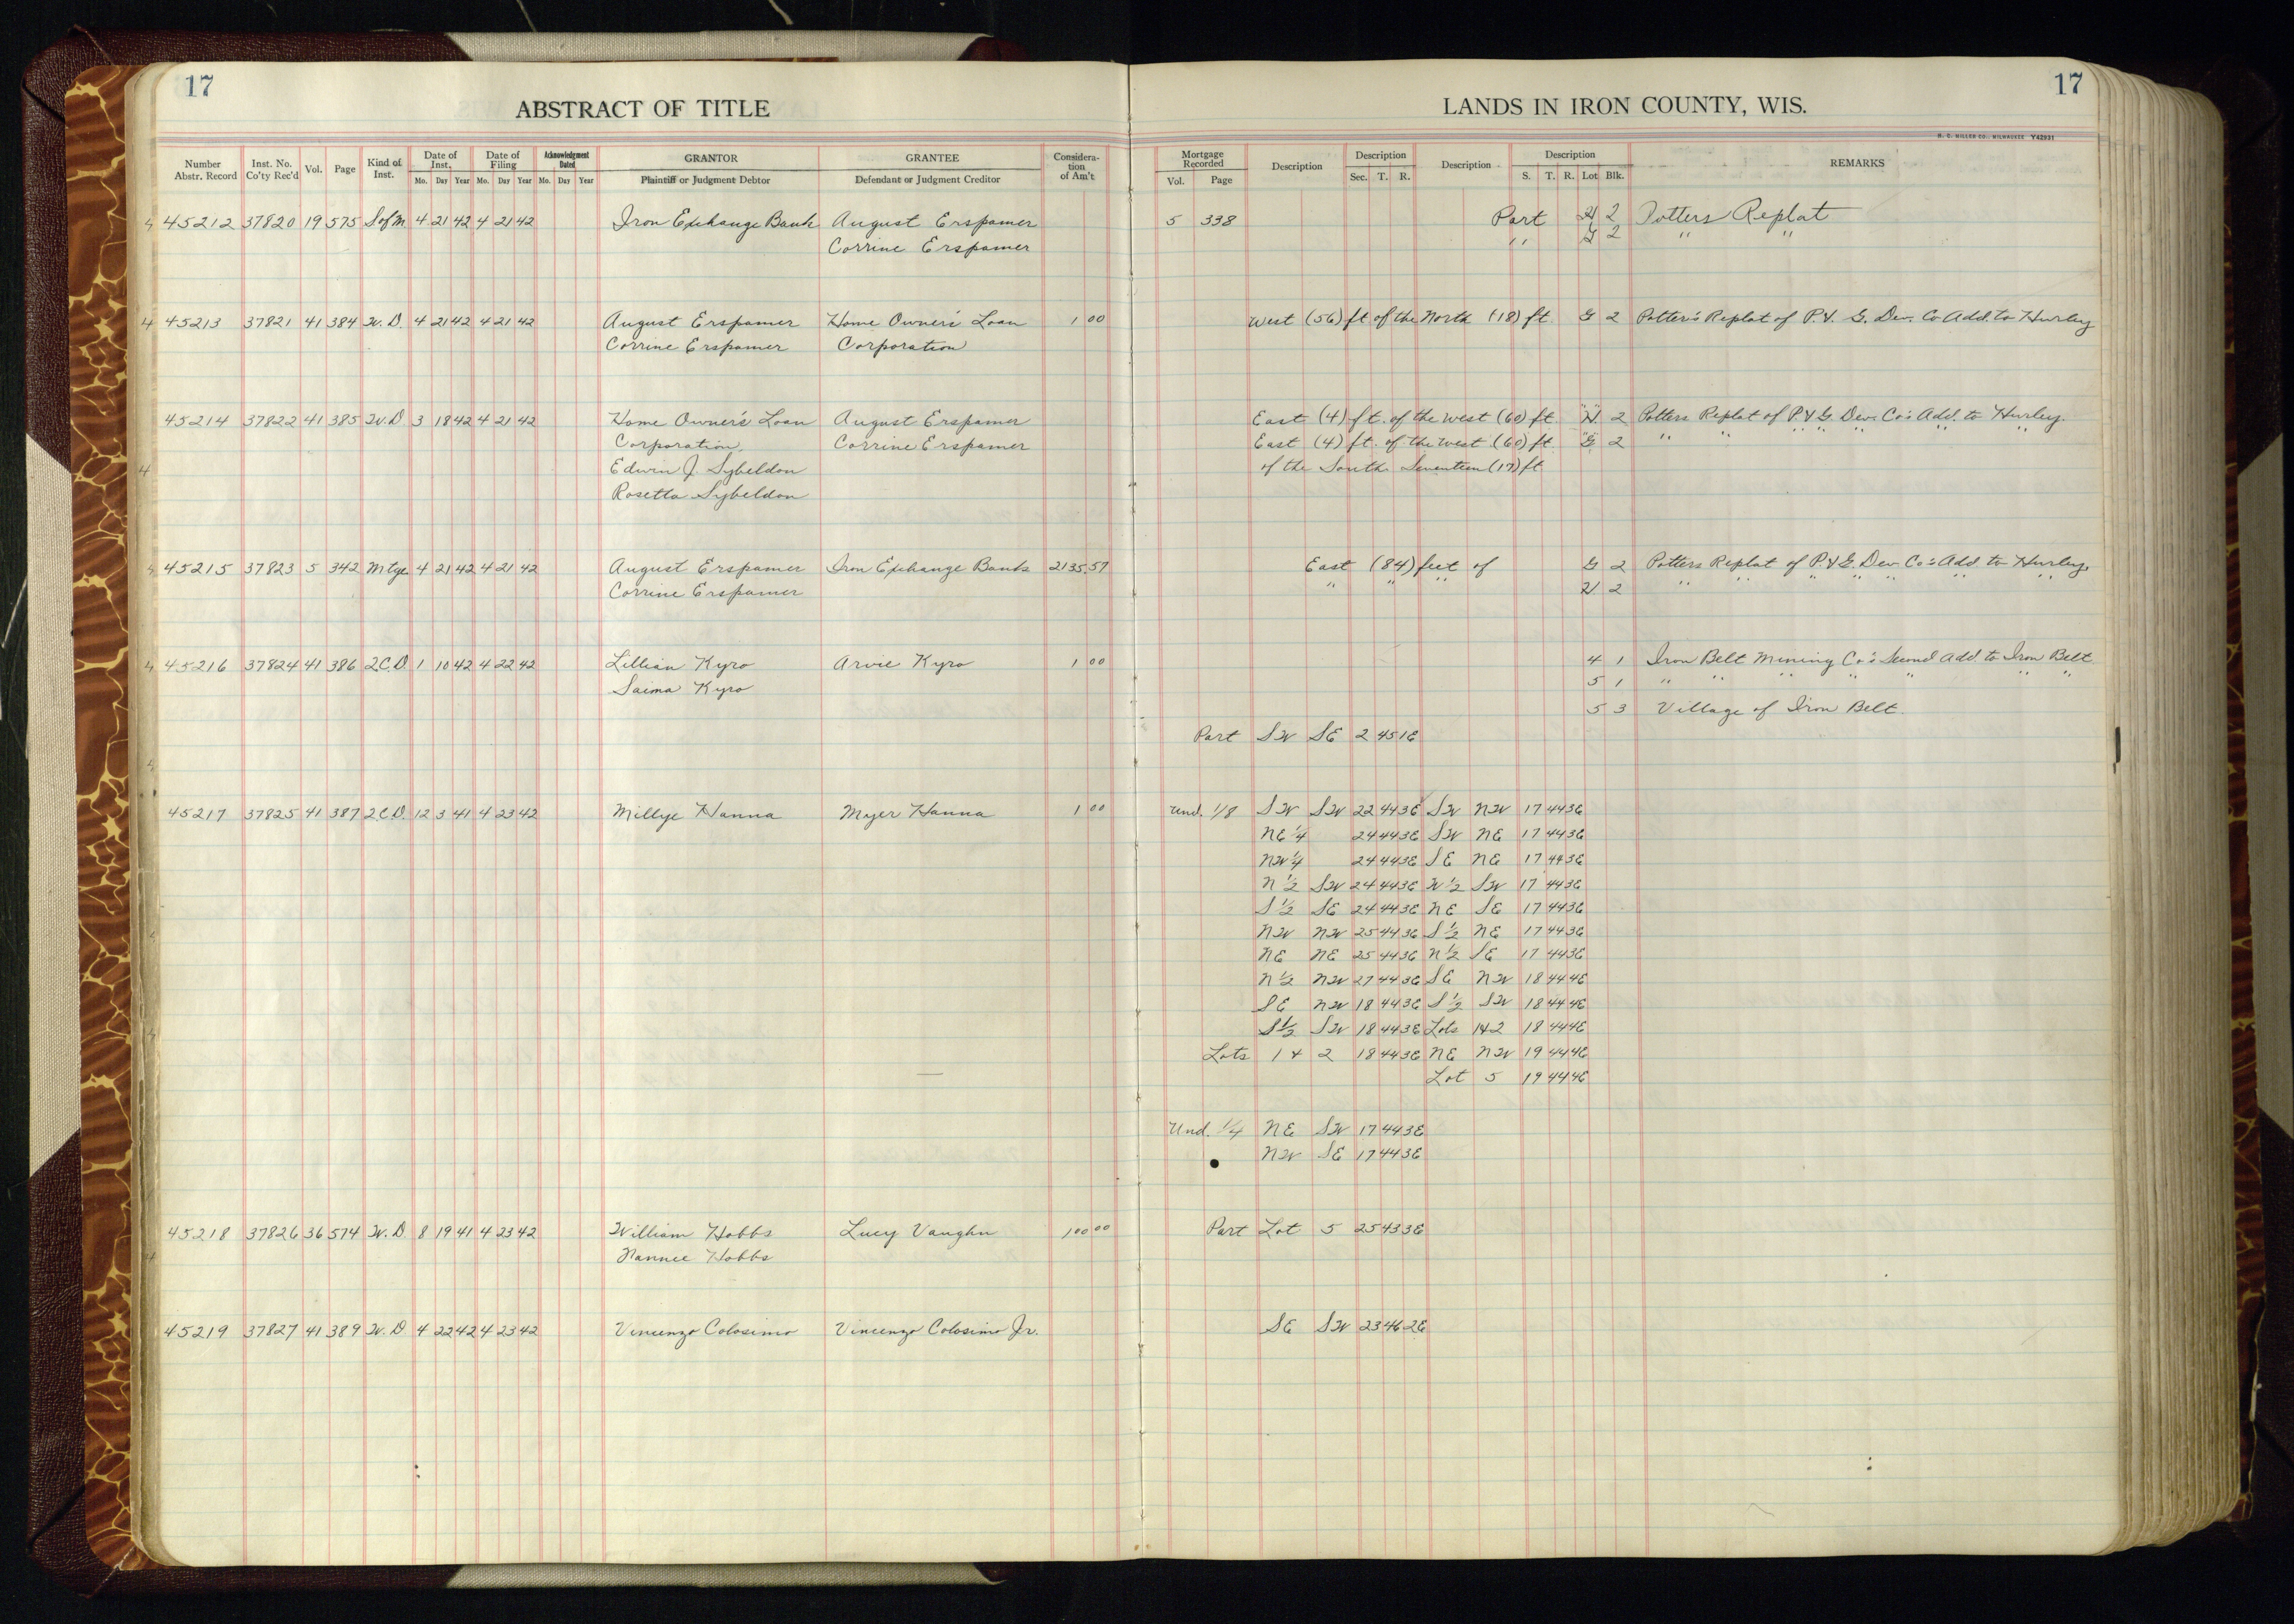 17
17
ABSTRACT OF TITLE
LANDS IN IRON COUNTY, WIS.
H. C. MILLER CO., MILWAUKEE Y42931
Number Abstr. Record Inst. No. Co'ty Rec'd Vol. Page Kind of Inst. Date of Inst. Mo. Day Year Date of Filing Mo. Day Year Acknowledgment Dated Mo. Day Year GRANTOR Plaintiff or Judgment Debtor GRANTEE Defendant or Judgment Creditor Considera-tion of Am't
Mortgage Recorded Vol. Page Description Description Sec. T. R. Description Description S. T. R. Lot Blk. REMARKS
4 45212 37820 19 575 S of M 4 21 42 4 21 42 Iron Exchange Bank August Erspamer 5 338 Part H 2 Potters Replat
Corrine Erspamer " G 2 " "
4 45213 37821 41 384 W. D. 4 21 42 4 21 42 August Erspamer Home Owner's Loan 1 00 West (56) ft of the North (18) ft. G 2 Potter's Replat of P. & G. Dev. Co Add. to Hurley
Corrine Erspamer Corporation
45214 37822 41 385 W. D 3 18 42 4 21 42 Home Owner's Loan August Erspamer East (4) ft. of the West (60) ft. "H" 2 Potters Replat of P. & G. Dev. Co's Add. to Hurley.
Corporation, Corrine Erspamer East (4) ft. of the West (60) ft. "G" 2 " " " " " " " "
4 Edwin J. Sybeldon of the South Seventeen (17) ft
Rosetta Sybeldon
4 45215 37823 5 342 Mtge 4 21 42 4 21 42 August Erspamer Iron Exchange Bank 2135.57 East (84) feet of G 2 Potters Replat of P. & G. Dev. Co's Add. to Hurley.
Corrine Erspamer " " " H 2 " " " " " " " "
4 45216 37824 41 386 2 C. D. 1 10 42 4 22 42 Lillian Kyro Arvie Kyro 1 00 4 1 Iron Belt Mining Co's Second Add. to Iron Belt
Saima Kyro 5 1 " " " " " " "
5 3 Village of Iron Belt.
Part SW SE 2 45 1E
4
45217 37825 41 387 2 C. D. 12 3 41 4 23 42 Millye Hanna Myer Hanna 1 00 Und. 1/8 SW SW 22 44 3E SW NW 17 44 3E
NE 1/4 24 44 3E SW NE 17 44 3E
NW 1/4 24 44 3E SE NE 17 44 3E
N 1/2 SW 24 44 3E W 1/2 SW 17 44 3E
S 1/2 SE 24 44 3E NE SE 17 44 3E
NW NW 25 44 3E S 1/2 NE 17 44 3E
NE NE 25 44 3E N 1/2 SE 17 44 3E
N 1/2 NW 27 44 3E SE NW 18 44 4E
SE NW 18 44 3E S 1/2 SW 18 44 4E
S 1/2 SW 18 44 3E Lots 1 & 2 18 44 4E
Lots 1 & 2 18 44 3E NE NW 19 44 4E
Lot 5 19 44 4E
Und. 1/4 NE SW 17 44 3E
NW SE 17 44 3E
45218 37826 36 574 W. D. 8 19 41 4 23 42 William Hobbs Lucy Vaughn 100 00 Part Lot 5 25 43 3E
4 Nannee Hobbs
45219 37827 41 389 W. D 4 22 42 4 23 42 Vincenzo Colosimo Vincenzo Colosimo Jr. SE SW 23 46 2E